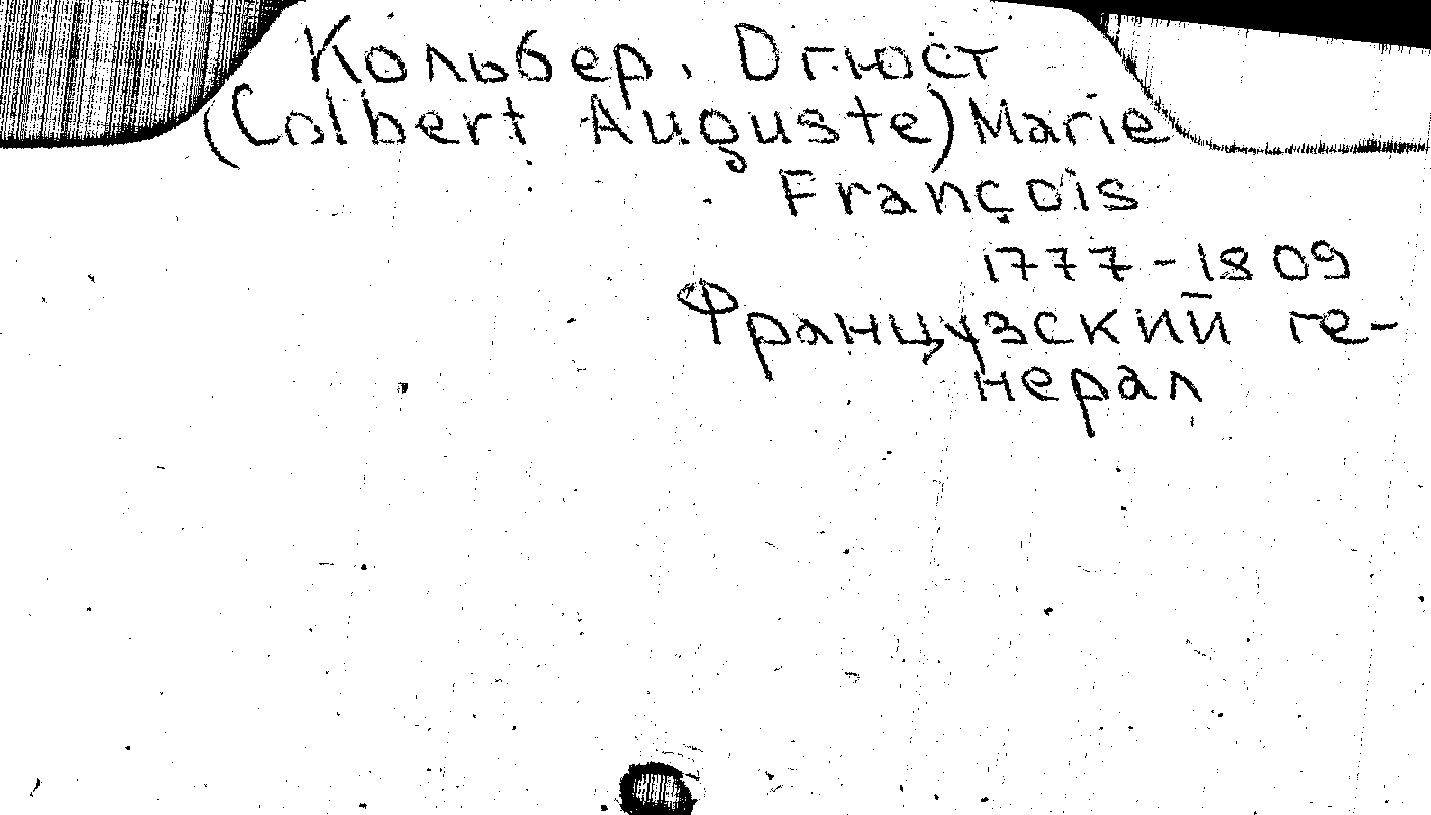 Кольбер, Огюст
(Colbert Auguste) Marie
François
1777-1809
Французский ге-
нерал